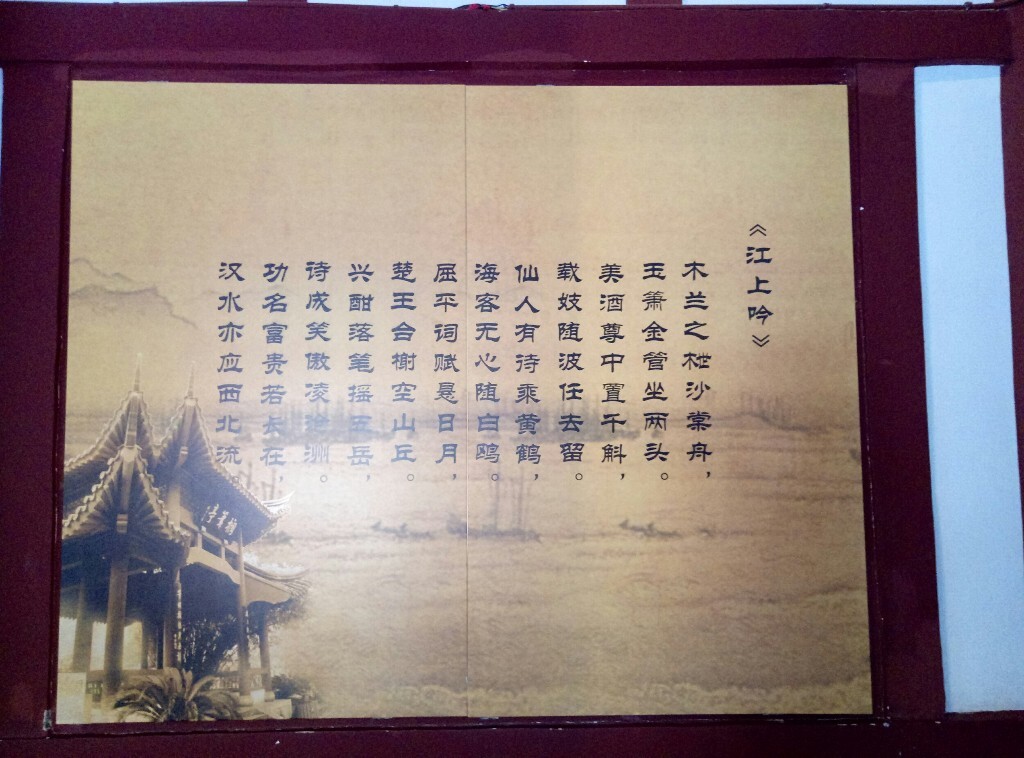 《江上吟》
木兰之枻沙棠舟，
玉箫金管坐两头。
美酒尊中置千斛，
载妓随波任去留。
仙人有待乘黄鹤，
海客无心随白鸥。
屈平词赋悬日月，
楚王台榭空山丘。
兴酣落笔摇五岳，
诗成笑傲凌沧洲。
功名富贵若长在，
汉水亦应西北流